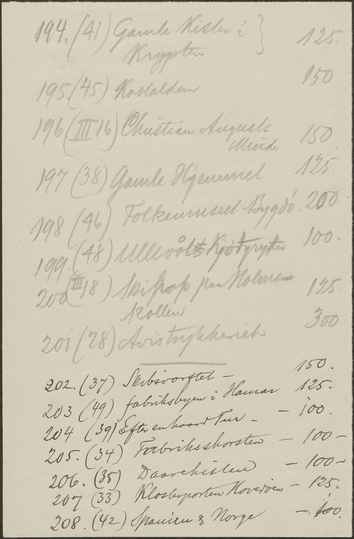 194. (41) Gamle Kister i } 125.
Krypten
195 (45) Kostalden 150
196 (III 16) Christian Augusts
Minde 150
197 (38) Gamle Hjemmet 125
198 (46) Folkemuseet Bygdö. 200
199. (48) Ullevålts 100.
200 (III 18) Skihop paa Holmen
kollen 125
201 (28) Avistrykkeriet 300
202. (37) Skibsværftet - 150.
203 (49) Fabriksbyen i Hamar 125.
204 (39) Efter en haard Tur. - 100.
205. (34) Fabriksskorsten - 100 -
206. (35) - 100 -
207 (33) Klosterporten Hovedöen - 125.
208. (42) Spanien & Norge - 100.